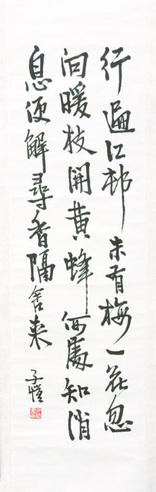 行遍江村未有梅一花忽
向暖枝開黄蜂何處知消
息便解尋香隔舍来
子愷